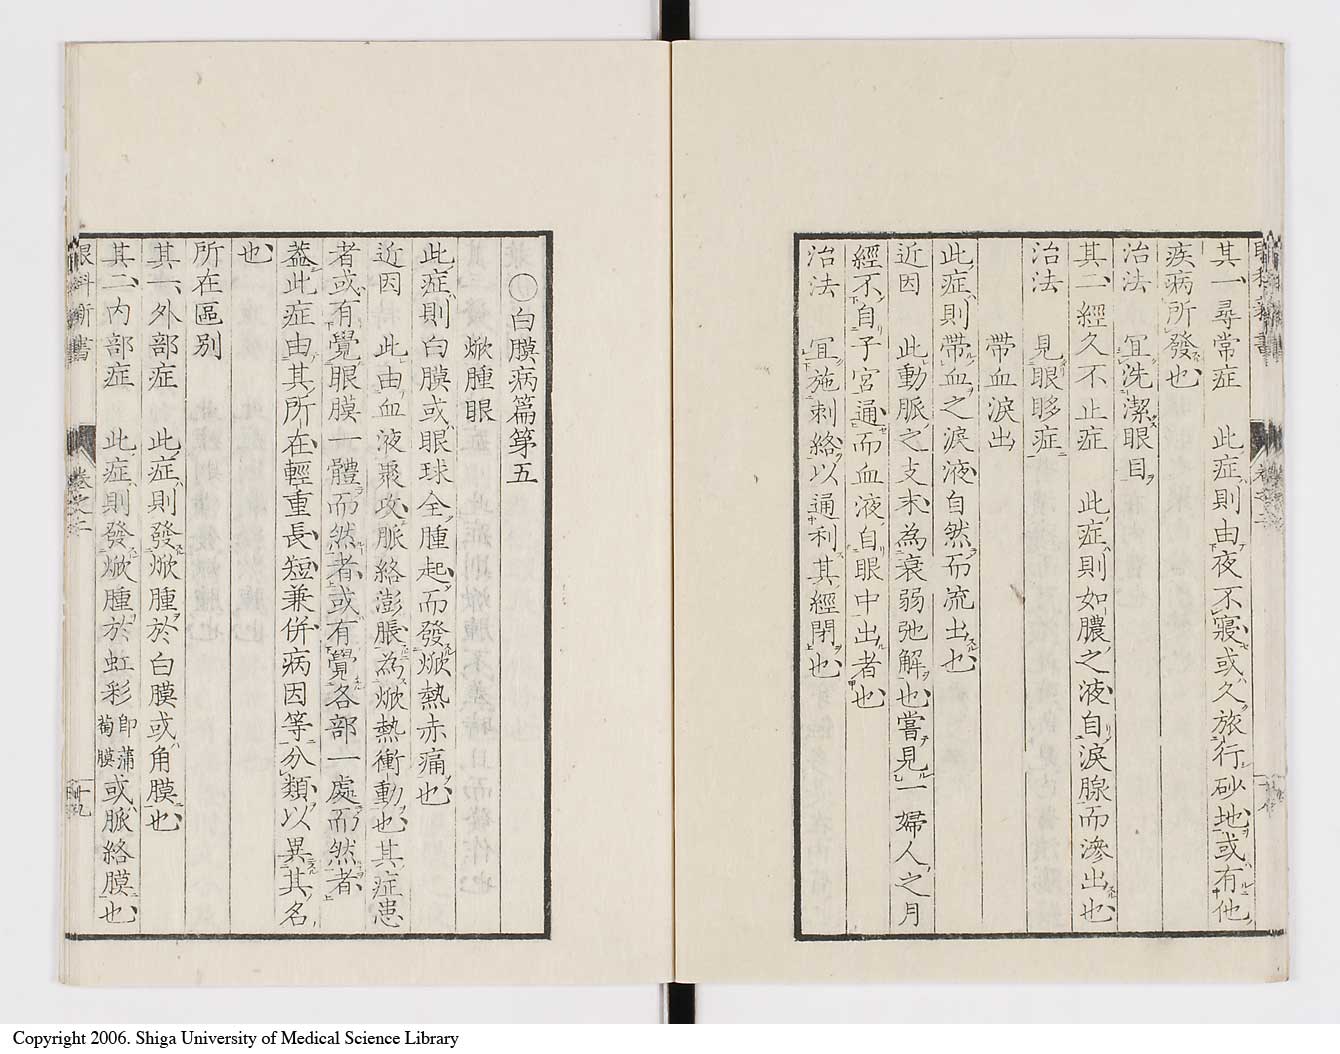 其一、尋常症 此症則由夜不寢或久旅行砂地或有他
疾病所發也
治法 冝洗潔眼目
其二、經久不止症 此症則如膿之液自淚腺而滲出也
治法 見眼眵症
帶血淚出
此症則帶血之淚液自然而流出也
近因 此動脈之支末為衰弱弛解也嘗見一婦人之月
經不自子宮通而血液自眼中出者也
治法 冝施刺絡以通利其經閉也
〇白膜病篇第五
焮腫眼
此症則白膜或眼球全腫起而發焮熱赤痛也
近因 此由血液聚攻脈絡澎脹為焮熱衝動也其症患
者或有覺眼膜一體而然者或有覺各部一處而然者
蓋此症由其所在輕重長短兼併病因等分類以異其名
也
所在區別
其一、外部症 此症則發焮腫於白膜或角膜也
其二、內部症 此症則發焮腫於虹彩即蒲萄膜或脈絡膜也
眼科新書 卷之二 十九
Copyright 2006. Shiga University of Medical Science Library